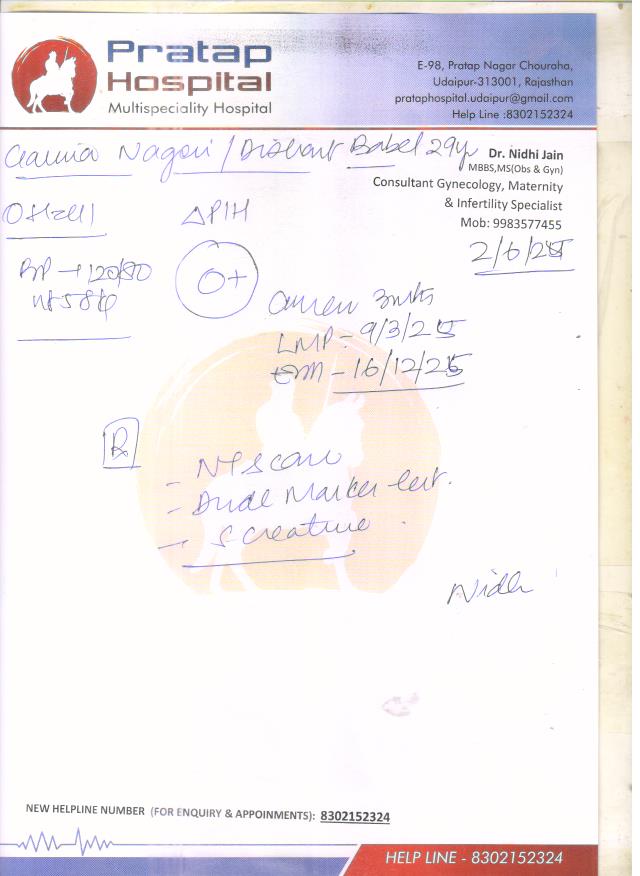 Pratap
Hospital
Multispeciality Hospital
E-98, Pratap Nagar Chouraha,
Udaipur-313001, Rajasthan
prataphospital.udaipur@gmail.com
Help Line :8302152324
Nagori / Dishant Babel 29y
Dr. Nidhi Jain
MBBS,MS(Obs & Gyn)
Consultant Gynecology, Maternity
& Infertility Specialist
Mob: 9983577455
2/6/25
ΔPIH
BP → 120/80
O+
LMP - 9/3/25
- 16/12/25
Rx
- NT scan
- Dual Marker test.
- S creatine
Nidhi
NEW HELPLINE NUMBER (FOR ENQUIRY & APPOINMENTS): 8302152324
HELP LINE - 8302152324